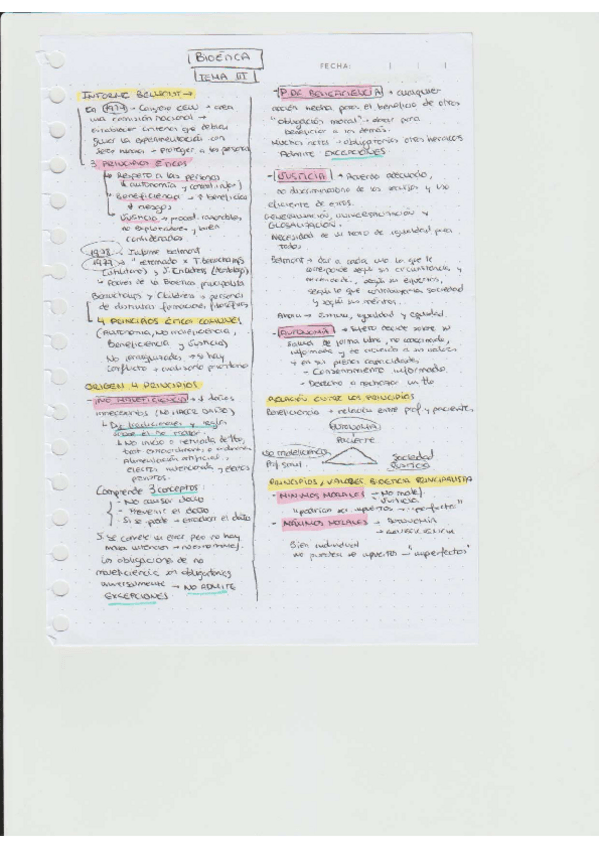 BIOÉTICA
TEMA III
FECHA:
INFORME BELMONT →
En 1974 → Congreso EEUU → crea
una comisión nacional →
establecer criterios que debían
guiar la experimentación con
seres humanos → Proteger a las personas
3 PRINCIPIOS ÉTICOS
Respeto a las personas
autonomía y consent. infor)
Beneficiencia → ↑ beneficios
↓ riesgos
Justicia → proced. razonables,
no explotadores y bien
considerados
1978 - Informe Belmont
1979 → retomado x T. Beauchamps
(utilitario) y J. Childress (deontólogo)
Padres de la Bioética principalista
Beauchamps y Childress → personas
de distintas formaciones filosóficas
4 PRINCIPIOS ÉTICOS COMUNES
(AUTONOMÍA, NO MALEFICENCIA,
Beneficiencia y Justicia)
No jerarquizados → si hay
conflicto →
ORIGEN 4 PRINCIPIOS
NO MALEFICIENCIA → daños
innecesarios (NO HACER DAÑO)
No inicio o retirada de tto,
alimentación artificial,
Comprende 3 conceptos:
- No causar daño
- Prevenir el daño
- Si se puede → el daño
Si se comete un error pero no hay
mala intención →
Las obligaciones de no
maleficiencia son obligatorias
universalmente → NO ADMITE
EXCEPCIONES
P. DE BENEFICIENCIA → cualquier
acción hecha para el beneficio de otros
"obligación moral" → obrar para
beneficiar a los demás.
Muchos actos → obligatorios otros heroicos
Admite EXCEPCIONES
- JUSTICIA → Acuerdo adecuado,
no discriminatorio de los recursos y uso
eficiente de estos.
GENERALIZACIÓN, UNIVERSALIZACIÓN Y
GLOBALIZACIÓN.
Necesidad de un trato de igualdad para
todos
Belmont → dar a cada uno lo que le
corresponde según sus circunstancias y
necesidades, según su esfuerzo,
según lo que contribuyan a la sociedad
y según sus méritos.
igualdad y equidad.
- AUTONOMÍA → sujeto decide sobre su
salud de forma libre, no coaccionada,
informado y de acuerdo a sus valores
y en sus plenas capacidades.
- Consentimiento informado.
- Derecho a rechazar un tto
RELACIÓN ENTRE LOS PRINCIPIOS
Beneficiencia → relación entre prof y paciente.
AUTONOMÍA
PACIENTE
No maleficiencia
Prof. salud.
Sociedad
Justicia
PRINCIPIOS, VALORES, BIOÉTICA PRINCIPALISTA
- MÍNIMOS MORALES → No malef.
Justicia
"perfectos"
- MÁXIMOS MORALES → Autonomía
→ Beneficiencia
Bien individual
no pueden ser → "imperfectos"